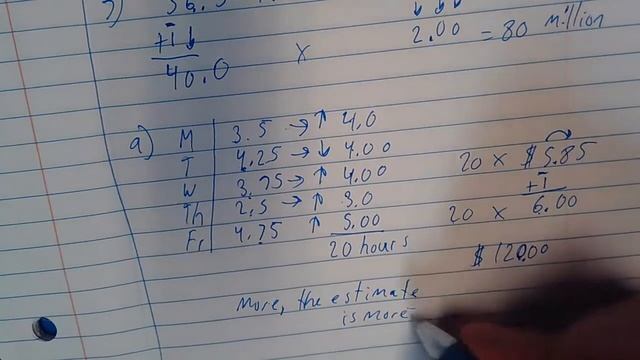 +1 ↓
40.0
x
2.00 = 80 million
a) M 3.5 → ↑ 4.0
T 4.25 → ↓ 4.00
W 3.75 → ↑ 4.00
Th 2.5 → ↑ 3.0
Fr 4.75 ↑ 5.00
20 hours
20 x $5.85
+1
20 x 6.00
$120.00
More, the estimate
is more